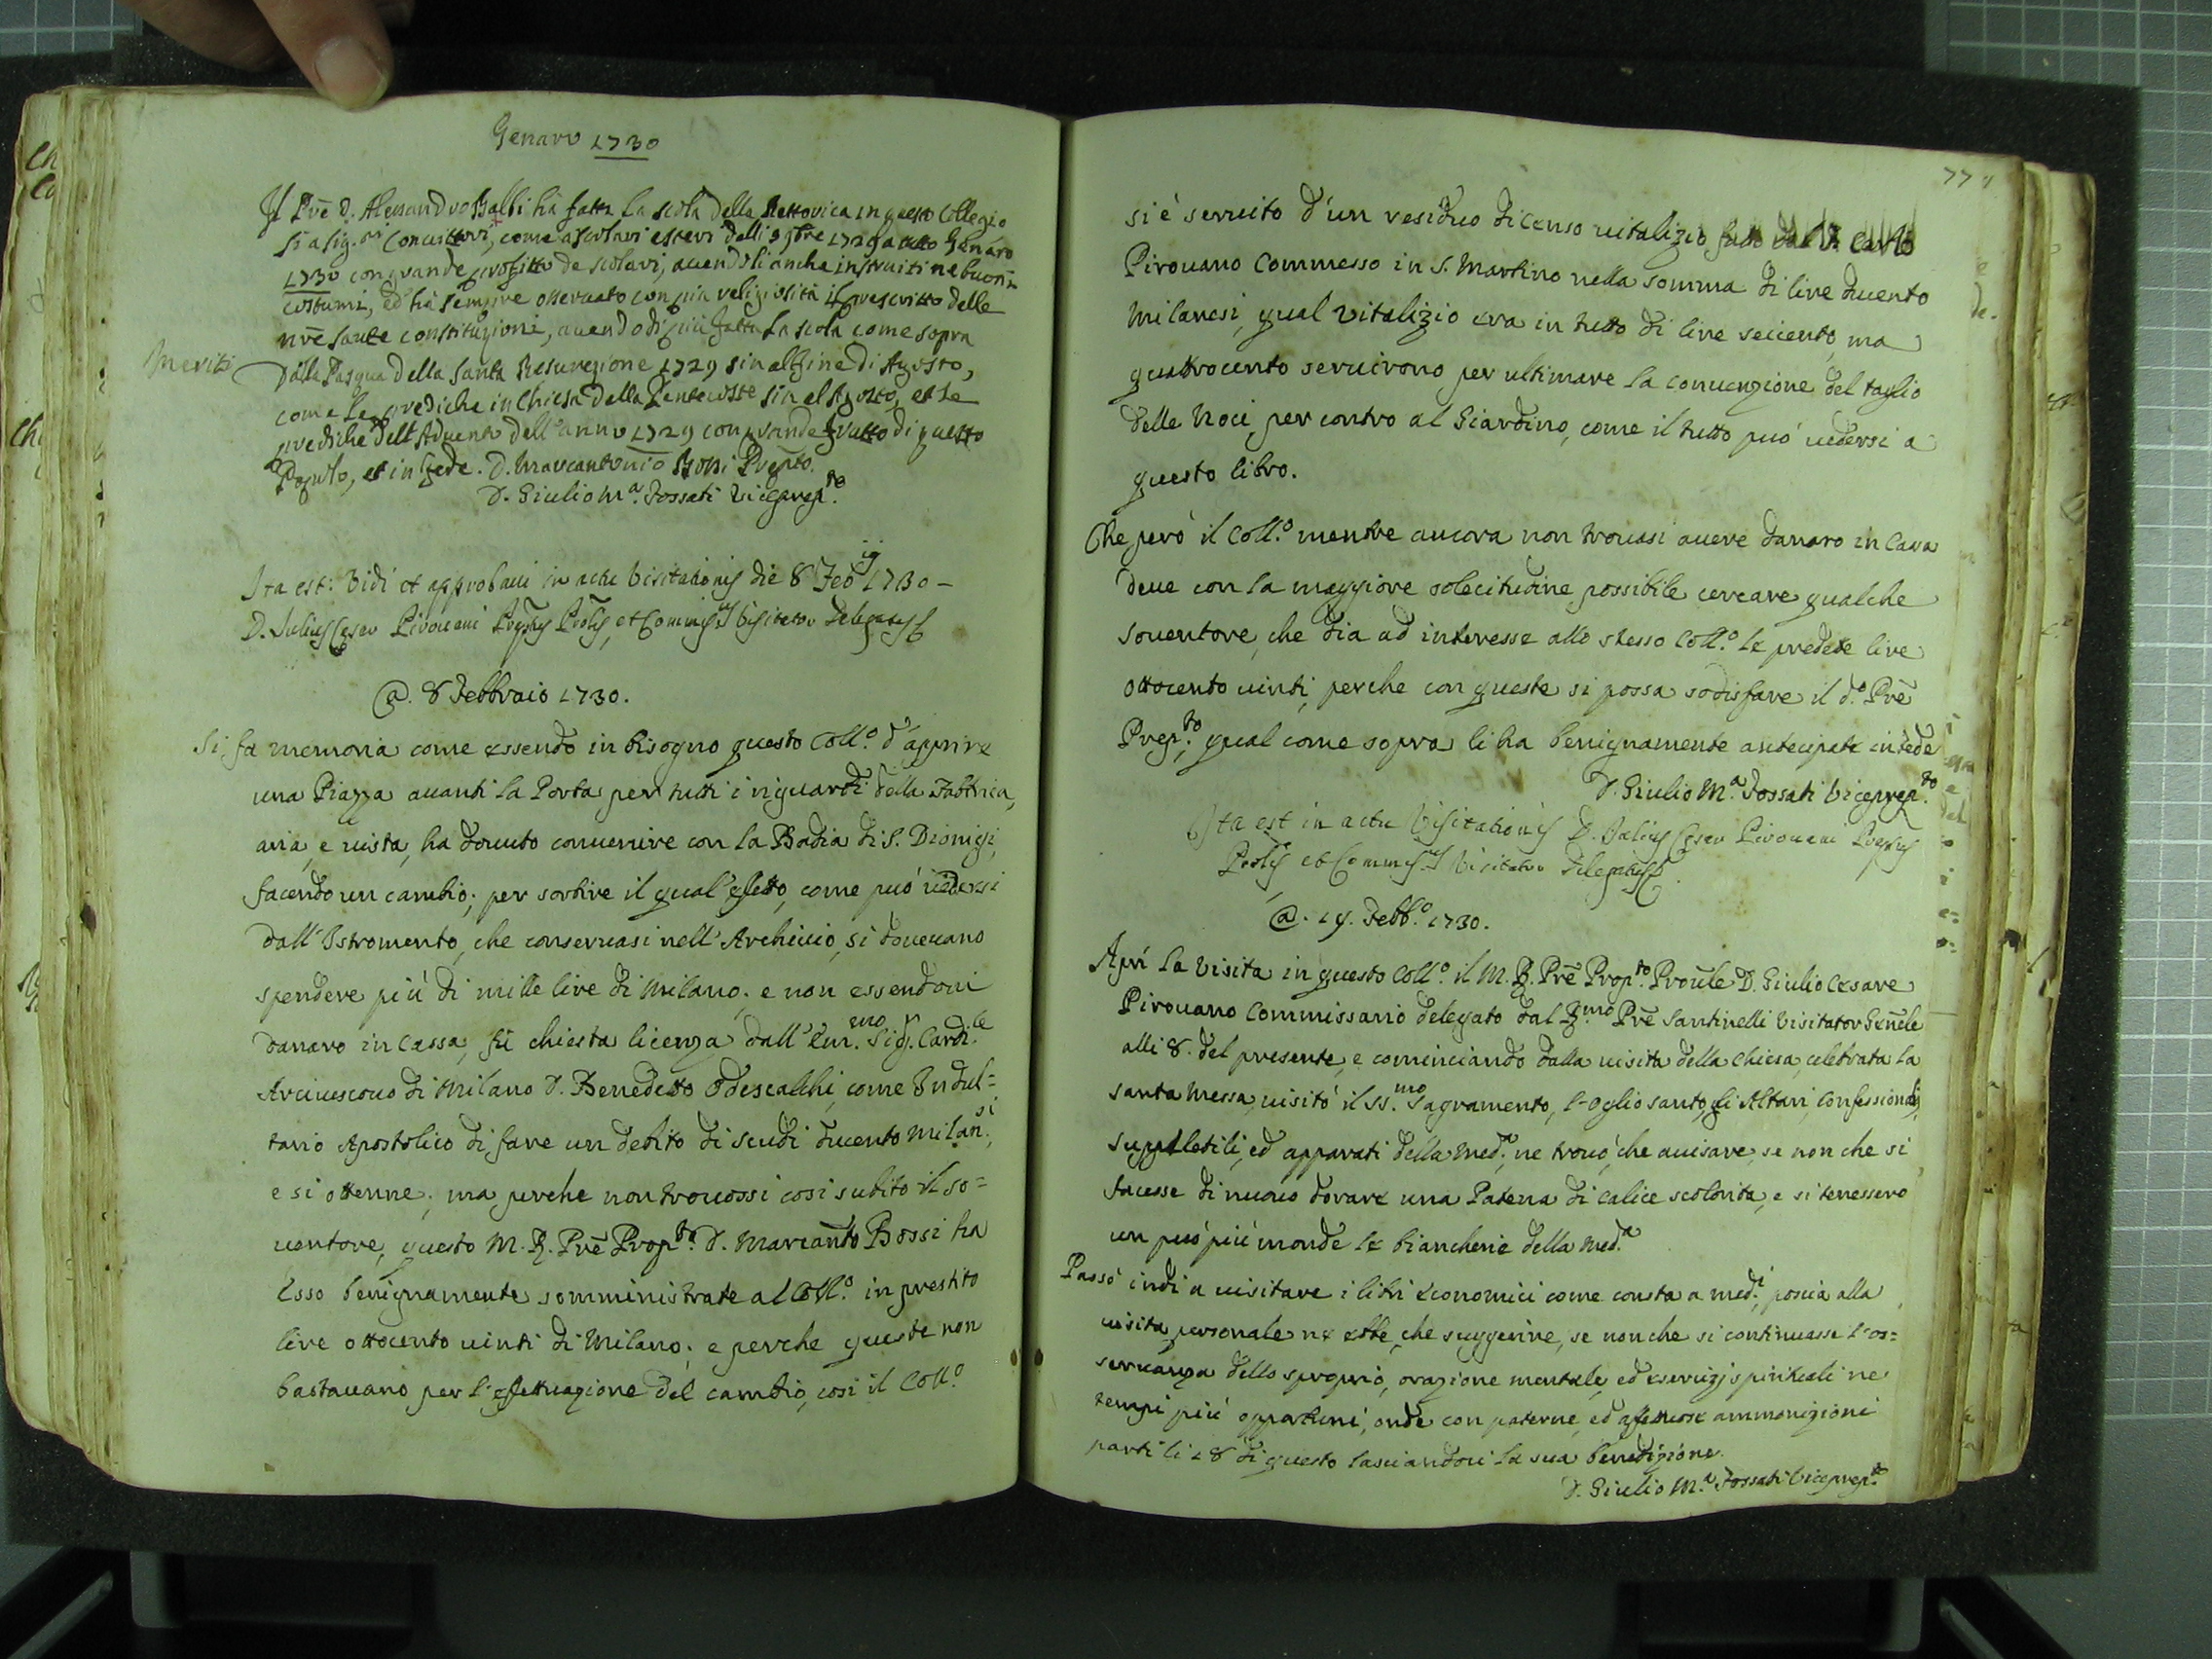 Genaro 1730
Il Prē D. Alessandro Balbi hà fatta la scola della Rettorica in questo Collegio
si a sig.ri Convittori, come a scolari esteri dalli 9bre 1729 a tutto Genaro
1730 con grande profitto de scolari, avendoli anche instruiti ne buoni
costumi, ed hà sempre osservato con pia religiosità il prescritto delle
nrē sante constitugioni, avendo di più fatta la scola come sopra
Meriti
Dalla Pasqua della Santa Resurregione 1729 sin al fine di Agosto,
come le prediche in Chiesa dalla Pentecoste sin al Agosto, et le
prediche dell'Advento dell'anno 1729 con grande frutto di questo
Popolo, et in fede. D. Marcantonio Bossi Prepto.
D. Giulio M.a Fossati Viceprep.to
Ita est: Vidi et approbavi in actu Visitationis die 8 Feb 1730 –
D. Julius Cesar Pirovani Prepus Prolis, et Commiss. Visitator Delegatus
@. 8 Febbraio 1730.
Si fa memoria come essendo in bisogno questo Coll.o d'apprire
una Piazza avanti la Porta per tutti i riguardi della Fabbrica,
aria, e vista, ha dovuto convenire con la Badia di S. Dionigi,
facendo un cambio; per sortire il qual'effetto, come può vedersi
dall'Istromento, che conservasi nell'Archivio, si dovevano
spendere più di mille lire di Milano; e non essendovi
danaro in Cassa, fù chiesta licenza dall'Em.mo Sig.r Cardi.le
Arcivescovo di Milano D. Benedetto Odescalchi, come Indul=
tario Apostolico di fare un debito di scudi ducento Milan.si,
e si ottenne; ma perche non trovossi così subito il so=
ventore, questo M. R. Prē Prop.to D. Marcanto Bossi ha
Esso benignamente somministrate al Coll.o in prestito
lire ottocento vinti di Milano; e perche queste non
bastavano per l'effettuazione del cambio, così il Coll.o
77
si è servito d'un residuo di censo vitalizio fatto dal Carlo
Pirovano Commesso in S. Martino nella somma di lire ducento
Milanesi, qual Vitalizio era in tutto di lire seicento, ma
quattrocento servirono per ultimare la convenzione del taglio
delle Noci, per contro al Giardino, come il tutto può vedersi a
questo libro.
Che però il Coll.o mentre ancora non trovasi avere danaro in Cassa
deve con la maggiore solecitudine possibile cercare qualche
soventore, che dia ad interesse allo stesso Coll.o le predete lire
ottocento vinti, perche con queste si possa sodisfare il d.o Prē
Prep.to, qual come sopra li ha benignamente antecipate in fede
D. Giulio M.a Fossati Viceprep.to
Ita est in actu Visitationis D. Julius Cesar Pirovani Prepus
Prolis et Commiss. Visitator Delegatus
@. 19. Febb.o 1730.
Aprì la Visita in questo Coll.o il M. R. Prē Prop.to Provīle D. Giulio Cesare
Pirovano Commissario delegato dal R.mo Prē Santinelli Visitator Genēle
alli 8. del presente, e cominciando dalla visita della Chiesa, celebrata la
Santa Messa, visitò il SS.mo Sagramento, l'Oglio santo, gli Altari, Confessionali,
suppelletili, ed apparati della Med.a, ne trovò, che avisare, se non che si
facesse di nuovo dorare una Patena di Calice scolorita, e si tenessero
un può più monde le biancherie della Med.a
Passò indi a visitare i libri economici come consta a med.i, poscia alla
visita personale ne ebbe, che suggerire, se non che si continuasse l'os=
servanza dello sproprio, orazione mentale, ed esercizj spirituali ne
tempi più opportuni, onde con paterne, ed affettuose ammonizioni
partì li 18 di questo lasciandovi la sua benedizione.
D. Giulio M.a Fossati Viceprep.to